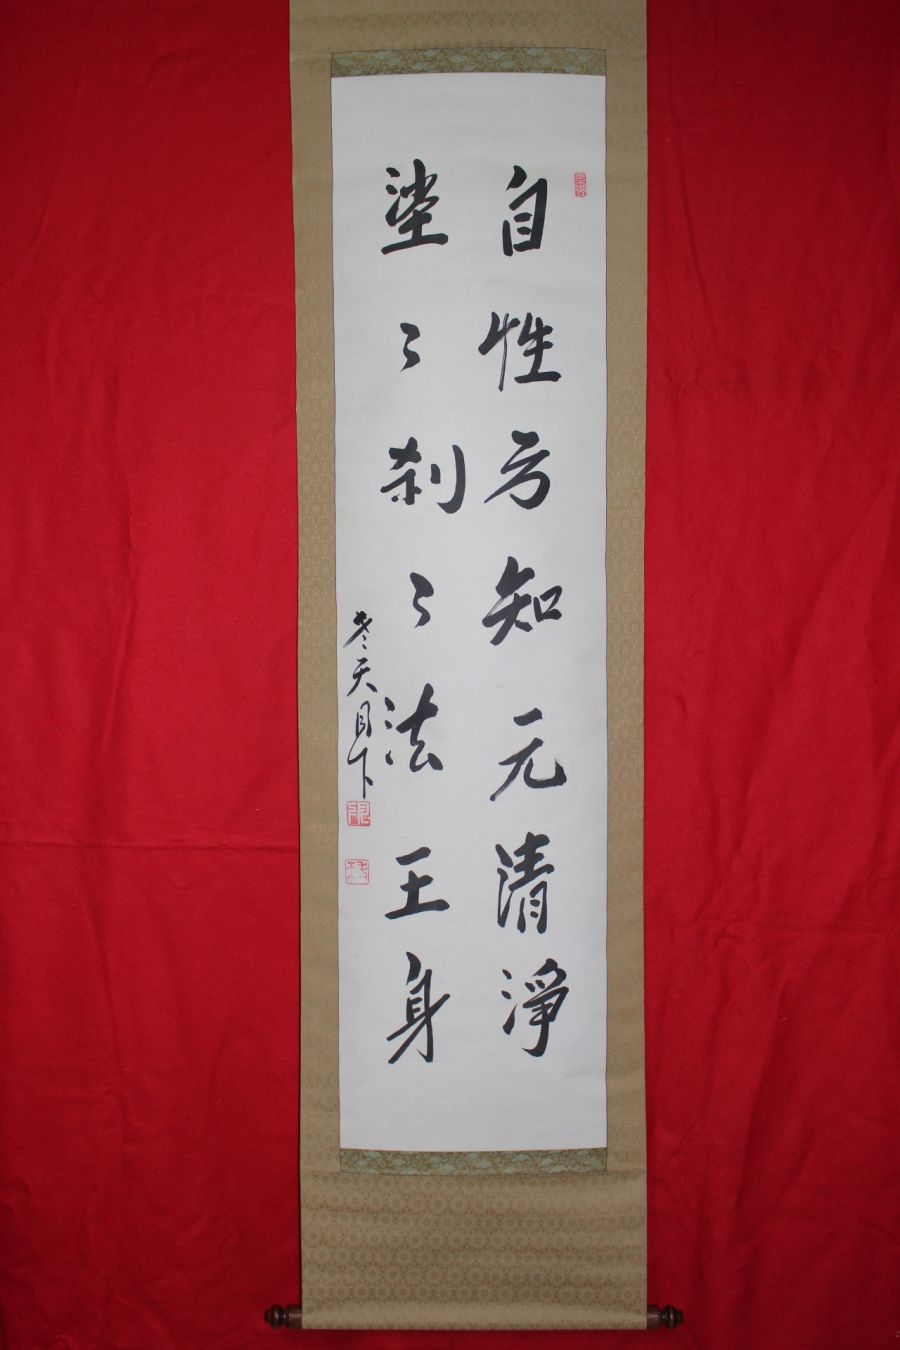 自性方知元清淨
塵〻刹〻法王身
冬天月下